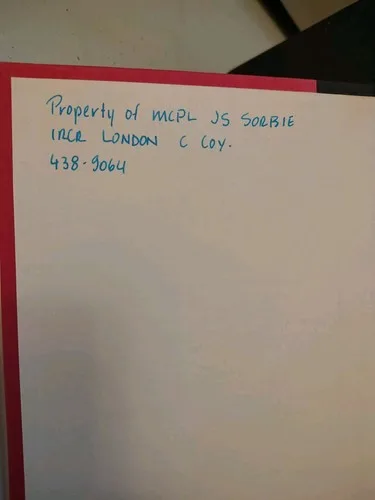 Property of MCPL JS SORBIE
1RCR LONDON C COY.
438-9064